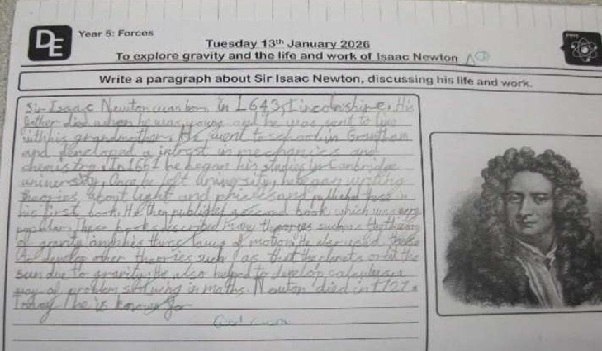 DE
Year 5: Forces
Tuesday 13th January 2026
To explore gravity and the life and work of Isaac Newton
Write a paragraph about Sir Isaac Newton, discussing his life and work.
Sir Isaac Newton was born in 1643, Lincolnshire. His
father died when he was young and he was sent to live
with his grandmother. He went to school in Grantham
and developed a intrest in mechanics and
chemistry. In 1661 he began his studies in
university. Once he left university, he began writing
theories about light and and published these in
his first book. He then published a second book which was very
popular. These books described many theories such as the theory
of gravity and his three laws of motion. He also used
to develop other theories such as that the planets orbit the
sun due to gravity. He also helped to develop calculus a
way of problem solving in maths. Newton died in 1727.
Today he is